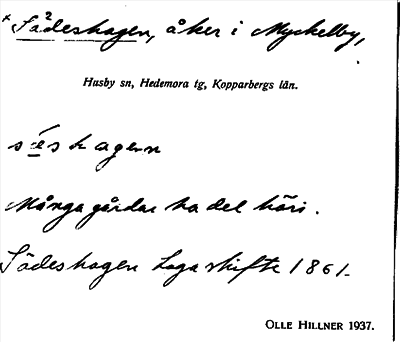 *Sädeshagen, åker i Myckelby,
Husby sn, Hedemora tg, Kopparbergs län.
Många gårdar ha del häri.
Sädeshagen Laga skifte 1861.
OLLE HILLNER 1937.